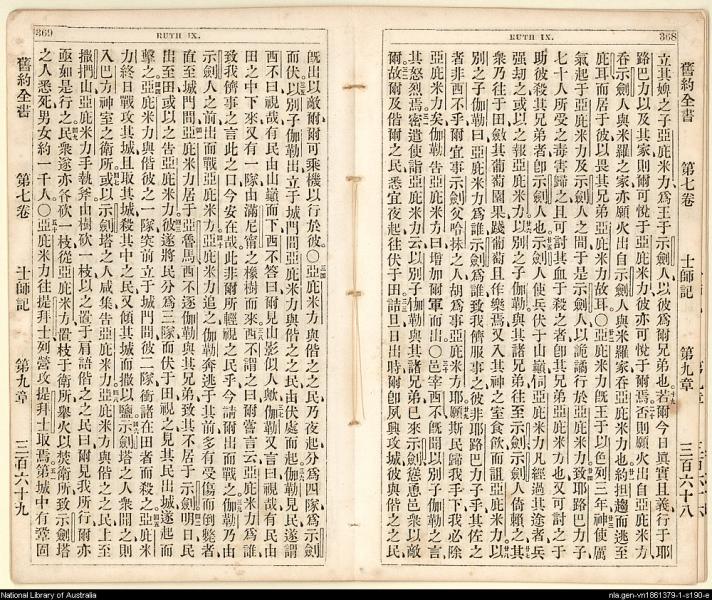 368
RUTH IX.
舊約全書 第七卷 士師記 第九章 三百六十八
立其婢之子亞庇米力爲王于示劍人以彼爲爾兄弟也若爾今日眞實且義行于耶
路巴力以及其家則爾可悅于亞庇米力彼亦可悅于爾焉否則願火出自亞庇米力
吞示劍人與米羅之家亦願火出自示劍人與米羅家吞亞庇米力也約担趨而逃至
庇耳而居于彼以畏其兄弟亞庇米力故耳〇亞庇米力旣王于以色列三年神使厲
氣起于亞庇米力及示劍人之間于是示劍人以詭譎行於亞庇米力致耶路巴力子
七十人所受之毒害歸之且可討其血于殺之者卽其兄弟亞庇米力也又可討之于
助彼殺其兄弟者卽示劍人也示劍人使兵伏于山巓伺亞庇米力凡經過其途者兵
强刧之或以之報亞庇米力以別之子伽勒與其諸兄弟往至示劍示劍人倚賴之其
衆乃往于田斂其葡萄園果踐葡萄且作樂焉又入其神之室食飮而詛亞庇米力以
別之子伽勒曰亞庇米力爲誰示劍爲誰致我儕服事之彼非耶路巴力子乎其佐之
者非西不乎爾宜事示劍父哈抹之人胡爲事亞庇米力耶願斯民歸我手下我必除
亞庇米力矣伽勒告亞庇米力曰增加爾軍而出〇邑宰西不旣聞以別子伽勒之言
其怒烈焉密遣使詣亞庇米力云以別子伽勒與其諸兄弟已來示劍慫慂邑衆以敵
爾故爾及偕爾之民悉宜夜起往伏于田詰旦日出時爾卽夙興攻城彼與偕之之民
369
RUTH IX.
旣出以敵爾爾可乘機以行於彼〇亞庇米力與偕之之民乃夜起分爲四隊爲示劍
而伏以別子伽勒出立于城門間亞庇米力與偕之之民由伏處而起伽勒見民遂謂
西不曰視哉有民由山巓而下西不答曰爾見山影似人歟伽勒又言曰視哉有民由
田之中下來又有一隊由滿尼甯之橡樹而來西不謂之曰爾嘗言云亞庇米力爲誰
致我儕事之言此之口今安在哉此非爾所輕視之民乎今請爾出而戰之伽勒乃由
示劍人之前出而戰亞庇米力亞庇米力追之伽勒奔逃于其前多有受傷而倒斃者
直至城門間亞庇米力居于亞魯馬西不逐伽勒與其兄弟致其不居于示劍明日民
出至田或以之告亞庇米力彼遂將民分爲三隊而伏于田視之見其民出城遂起而
擊之亞庇米力與偕彼之一隊突前立于城門間彼二隊衝諸在田者而殺之亞庇米
力終日戰攻其城且取其城殺其中之民又傾其城而撒以鹽示劍塔之人衆聞之則
入巴力神室之衛所或以示劍塔之人咸集告亞庇米力亞庇米力與偕之之民上至
撒捫山亞庇米力手執斧由樹砍一枝以之置于肩語偕之之民曰爾見我所行爾亦
亟如是行之民衆遂亦各砍一枝從亞庇米力置枝于衛所舉火以焚衛所致示劍塔
之人悉死男女約一千人〇亞庇米力往提拜士列營攻提拜士取焉第城中有鞏固
舊約全書 第七卷 士師記 第九章 三百六十九
National Library of Australia
nla.gen-vn1861379-1-s190-e